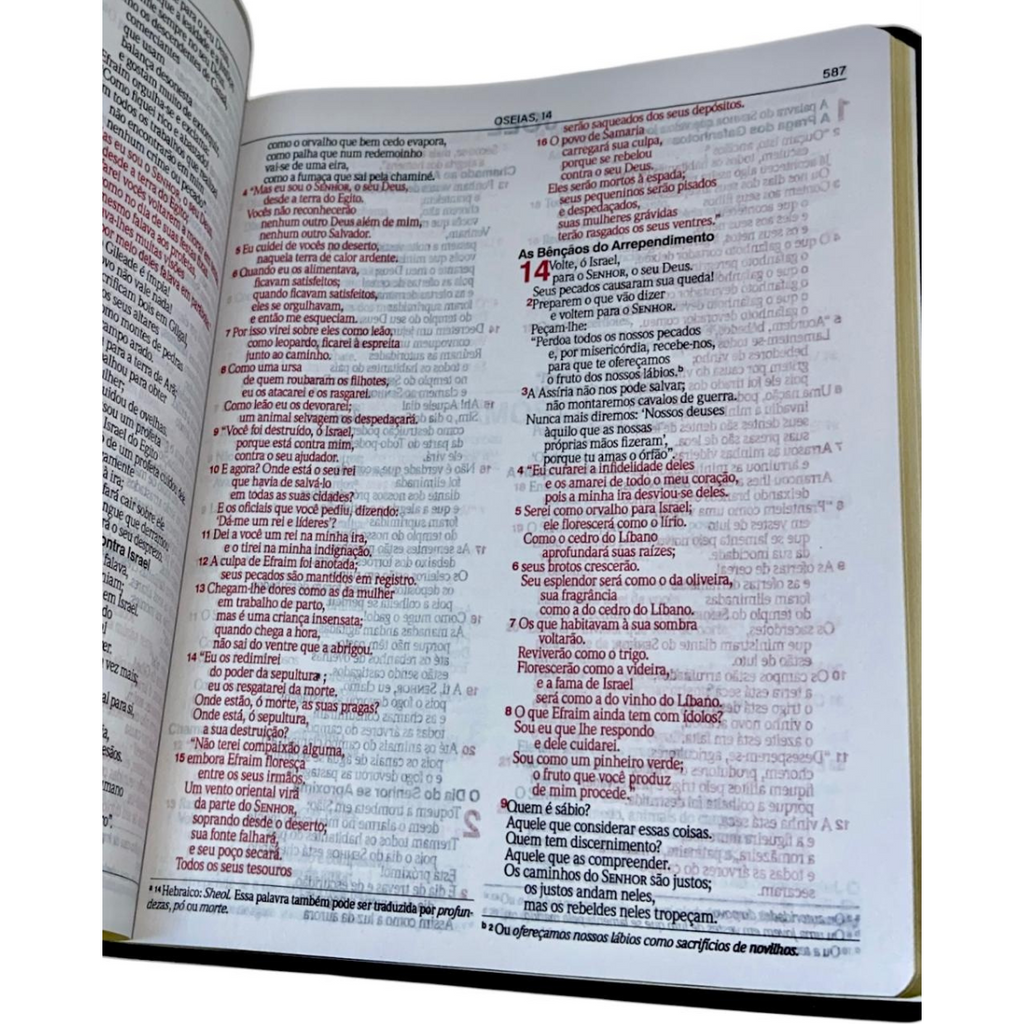 para o seu
comerciantes
que usam
balança desonesta
e gostam muito de extorquir.
Efraim orgulha-se e exclama:
Como fiquei rico e abastado!
em todos os trabalhos que realizei
não encontrarão em mim
nenhum crime ou pecado
eu sou o SENHOR, o seu Deus,
desde a terra do Egito,
farei vocês voltarem a morar
como no dia de suas festas fixas.
mesmo falava aos profetas,
muitas visões
por meio deles falava em parábolas.
Gileade é ímpia!
não vale nada!
sacrificam bois em Gilgal,
os seus altares
como montes de pedras
campo arado.
para a terra de Arã;
para obter
mulher;
cuidou de ovelhas.
usou um profeta
Israel do Egito
de um profeta cuidou dele.
a ira;
fará cair sobre ele
sangue que derramou
o seu desprezo.
contra Israel
falava,
em Israel.
vez mais;
para si,
OSEIAS, 14
587
como o orvalho que bem cedo evapora,
como palha que num redemoinho
vai-se de uma eira,
como a fumaça que sai pela chaminé.
4 "Mas eu sou o SENHOR, o seu Deus,
desde a terra do Egito.
Vocês não reconhecerão
nenhum outro Deus além de mim,
nenhum outro Salvador.
5 Eu cuidei de vocês no deserto,
naquela terra de calor ardente.
6 Quando eu os alimentava,
ficavam satisfeitos;
quando ficavam satisfeitos,
eles se orgulhavam,
e então me esqueciam.
7 Por isso virei sobre eles como leão,
como leopardo, ficarei à espreita
junto ao caminho.
8 Como uma ursa
de quem roubaram os filhotes,
eu os atacarei e os rasgarei.
Como leão eu os devorarei;
um animal selvagem os despedaçará.
9 "Você foi destruído, ó Israel,
porque está contra mim,
contra o seu ajudador.
10 E agora? Onde está o seu rei
que havia de salvá-lo
em todas as suas cidades?
E os oficiais que você pediu, dizendo:
'Dá-me um rei e líderes'?
11 Dei a você um rei na minha ira,
e o tirei na minha indignação.
12 A culpa de Efraim foi anotada;
seus pecados são mantidos em registro.
13 Chegam-lhe dores como as da mulher
em trabalho de parto,
mas é uma criança insensata;
quando chega a hora,
não sai do ventre que a abrigou.
14 "Eu os redimirei
do poder da sepultura ;
eu os resgatarei da morte.
Onde estão, ó morte, as suas pragas?
Onde está, ó sepultura,
a sua destruição?
"Não terei compaixão alguma,
15 embora Efraim floresça
entre os seus irmãos.
Um vento oriental virá
da parte do SENHOR,
soprando desde o deserto;
sua fonte falhará,
e seu poço secará.
Todos os seus tesouros
a 14 Hebraico: Sheol. Essa palavra também pode ser traduzida por profun-
dezas, pó ou morte.
serão saqueados dos seus depósitos.
16 O povo de Samaria
carregará sua culpa,
porque se rebelou
contra o seu Deus.
Eles serão mortos à espada;
seus pequeninos serão pisados
e despedaçados,
suas mulheres grávidas
terão rasgados os seus ventres."
As Bênçãos do Arrependimento
14 Volte, ó Israel,
para o SENHOR, o seu Deus.
Seus pecados causaram sua queda!
2 Preparem o que vão dizer
e voltem para o SENHOR.
Peçam-lhe:
"Perdoa todos os nossos pecados
e, por misericórdia, recebe-nos,
para que te ofereçamos
o fruto dos nossos lábios.b
3 A Assíria não nos pode salvar;
não montaremos cavalos de guerra.
Nunca mais diremos: 'Nossos deuses'
àquilo que as nossas
próprias mãos fizeram',
porque tu amas o órfão".
4 "Eu curarei a infidelidade deles
e os amarei de todo o meu coração,
pois a minha ira desviou-se deles.
5 Serei como orvalho para Israel;
ele florescerá como o lírio.
Como o cedro do Líbano
aprofundará suas raízes;
6 seus brotos crescerão.
Seu esplendor será como o da oliveira,
sua fragrância
como a do cedro do Líbano.
7 Os que habitavam à sua sombra
voltarão.
Reviverão como o trigo.
Florescerão como a videira,
e a fama de Israel
será como a do vinho do Líbano.
8 O que Efraim ainda tem com ídolos?
Sou eu que lhe respondo
e dele cuidarei.
Sou como um pinheiro verde;
o fruto que você produz
de mim procede."
9 Quem é sábio?
Aquele que considerar essas coisas.
Quem tem discernimento?
Aquele que as compreender.
Os caminhos do SENHOR são justos;
os justos andam neles,
mas os rebeldes neles tropeçam.
b 2 Ou ofereçamos nossos lábios como sacrifícios de novilhos.